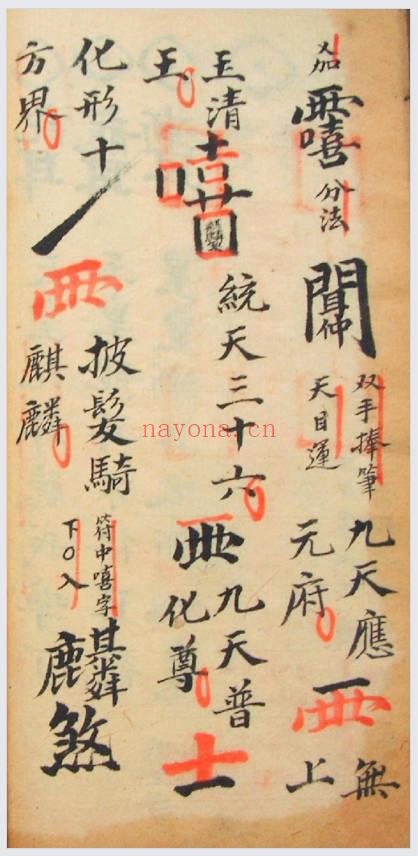 分法
双手捧筆
天目運
九天應
元府
無
上
玉清
王
統天三十六
九天普
化尊
化形十
方界
披髮騎
麒麟
符中嘻字
下〇入
煞
nayona.cn